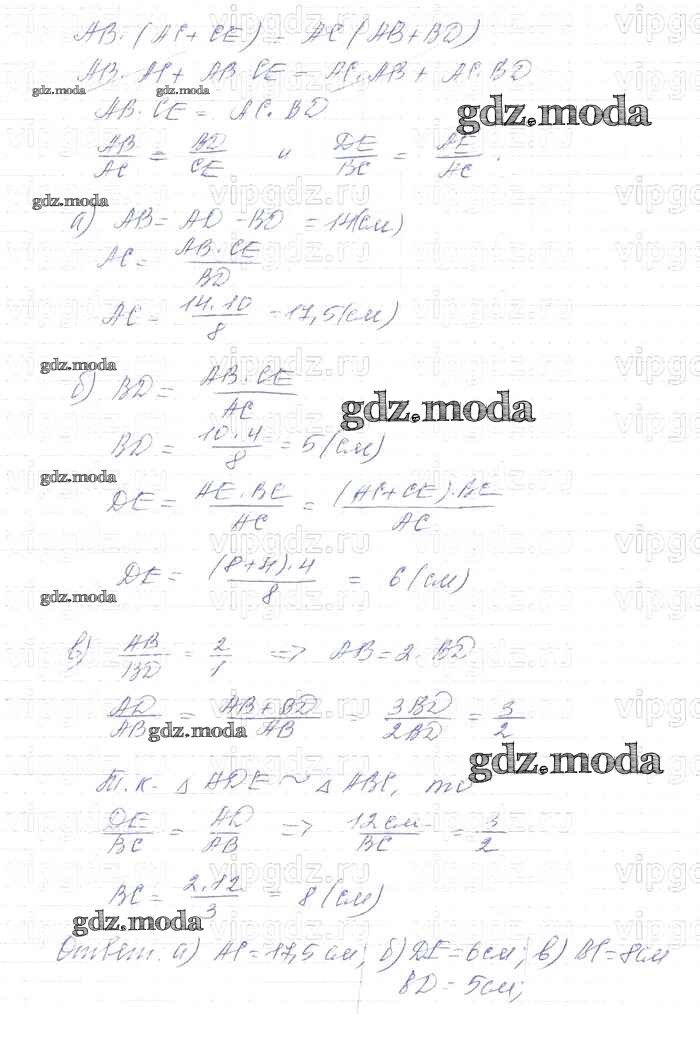 AB·(AC+CE) = AC(AB+BD)
AB·AC + AB·CE = AC·AB + AC·BD
gdz.moda gdz.moda
AB·CE = AC·BD
gdz.moda
AB/AC = BD/CE и DE/BC = AE/AC.
gdz.moda
а) AB = AD - BD = 14(см)
AC = AB·CE/BD
AC = 14·10/8 = 17,5(см)
gdz.moda
б) BD = AB·CE/AC
gdz.moda
BD = 10·4/8 = 5(см)
gdz.moda
DE = AE·BC/AC = (AC+CE)·BC/AC
DE = (8+4)·4/8 = 6(см)
gdz.moda
в) AB/BD = 2/1 => AB = 2·BD
AD/AB = AB+BD/AB = 3BD/2BD = 3/2
gdz.moda
gdz.moda
Т.к. △ADE ~ △ABC, то
DE/BC = AD/AB => 12см/BC = 3/2
BC = 2·12/3 = 8(см)
gdz.moda
Ответ. а) AC=17,5см; б) DE=6см; в) BC=8см
BD = 5см;
vipgdz.ru